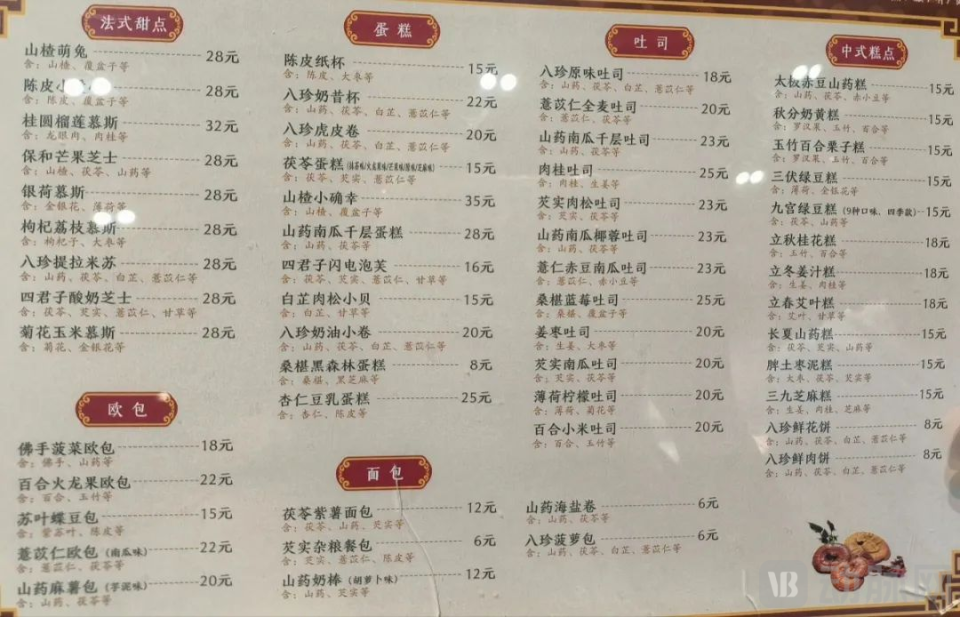 法式甜点
山楂萌兔 28元
含：山楂、覆盆子等
28元
含：陈皮、覆盆子等
桂圆榴莲慕斯 32元
含：龙眼肉、肉桂等
保和芒果芝士 28元
含：山楂、茯苓、山药等
银荷慕斯 28元
含：金银花、薄荷等
枸杞荔枝慕斯 28元
含：枸杞子、大枣等
八珍提拉米苏 28元
含：山药、茯苓、白芷、薏苡仁等
四君子酸奶芝士 28元
含：茯苓、芡实、薏苡仁、甘草等
菊花玉米慕斯 28元
含：菊花、金银花等
欧包
佛手菠菜欧包 18元
含：佛手、山药等
百合火龙果欧包 22元
含：百合、玉竹等
苏叶蝶豆包 15元
含：紫苏叶、陈皮等
薏苡仁欧包（南瓜味） 22元
含：薏苡仁、茯苓等
山药麻薯包（芋泥味） 20元
含：山药、茯苓等
蛋糕
陈皮纸杯 15元
含：陈皮、大枣等
八珍奶昔杯 22元
含：山药、茯苓、白芷、薏苡仁等
八珍虎皮卷 20元
含：山药、茯苓、白芷、薏苡仁等
茯苓蛋糕 15元
含：茯苓、芡实、薏苡仁等
山楂小确幸 35元
含：山楂、覆盆子等
山药南瓜千层蛋糕 28元
含：山药、茯苓等
四君子闪电泡芙 16元
含：茯苓、芡实、薏苡仁、甘草等
白芷肉松小贝 15元
含：白芷、甘草等
八珍奶油小卷 20元
含：山药、茯苓、白芷、薏苡仁等
桑椹黑森林蛋糕 8元
含：桑椹、黑芝麻等
杏仁豆乳蛋糕 25元
含：杏仁、陈皮等
面包
茯苓紫薯面包 12元
含：茯苓、山药、芡实等
芡实杂粮餐包 6元
含：芡实、薏苡仁、陈皮等
山药奶棒（胡萝卜味） 12元
含：山药、芡实等
山药海盐卷 6元
含：山药、茯苓等
八珍菠萝包 6元
含：山药、茯苓、白芷、薏苡仁等
吐司
八珍原味吐司 18元
含：山药、茯苓、白芷、薏苡仁等
薏苡仁全麦吐司 20元
含：薏苡仁、茯苓等
山药南瓜千层吐司 23元
含：山药、茯苓等
肉桂吐司 25元
含：肉桂、生姜等
芡实肉松吐司 23元
含：芡实、茯苓等
山药南瓜椰蓉吐司 23元
含：山药、茯苓等
薏仁赤豆南瓜吐司 23元
含：薏苡仁、赤小豆等
桑椹蓝莓吐司 25元
含：桑椹、覆盆子等
姜枣吐司 20元
含：生姜、大枣等
芡实南瓜吐司 20元
含：芡实、茯苓等
薄荷柠檬吐司 20元
含：薄荷、菊花等
百合小米吐司 20元
含：百合、玉竹等
中式糕点
太极赤豆山药糕 15元
含：山药、茯苓、赤小豆等
秋分奶黄糕 15元
含：罗汉果、玉竹、百合等
玉竹百合栗子糕 15元
含：罗汉果、玉竹、百合等
三伏绿豆糕 15元
含：薄荷、金银花等
九宫绿豆糕（9种口味、四季款） 15元
含：茯苓、山药等
立秋桂花糕 18元
含：玉竹、百合等
立冬姜汁糕 18元
含：生姜、肉桂等
立春艾叶糕 18元
含：艾叶、甘草等
长夏山药糕 15元
含：茯苓、芡实、山药等
脾土枣泥糕 15元
含：大枣、茯苓、芡实等
三九芝麻糕 15元
含：生姜、肉桂、芝麻等
八珍鲜花饼 8元
含：山药、茯苓、白芷、薏苡仁等
八珍鲜肉饼 8元
含：山药、茯苓、白芷、薏苡仁等
VB